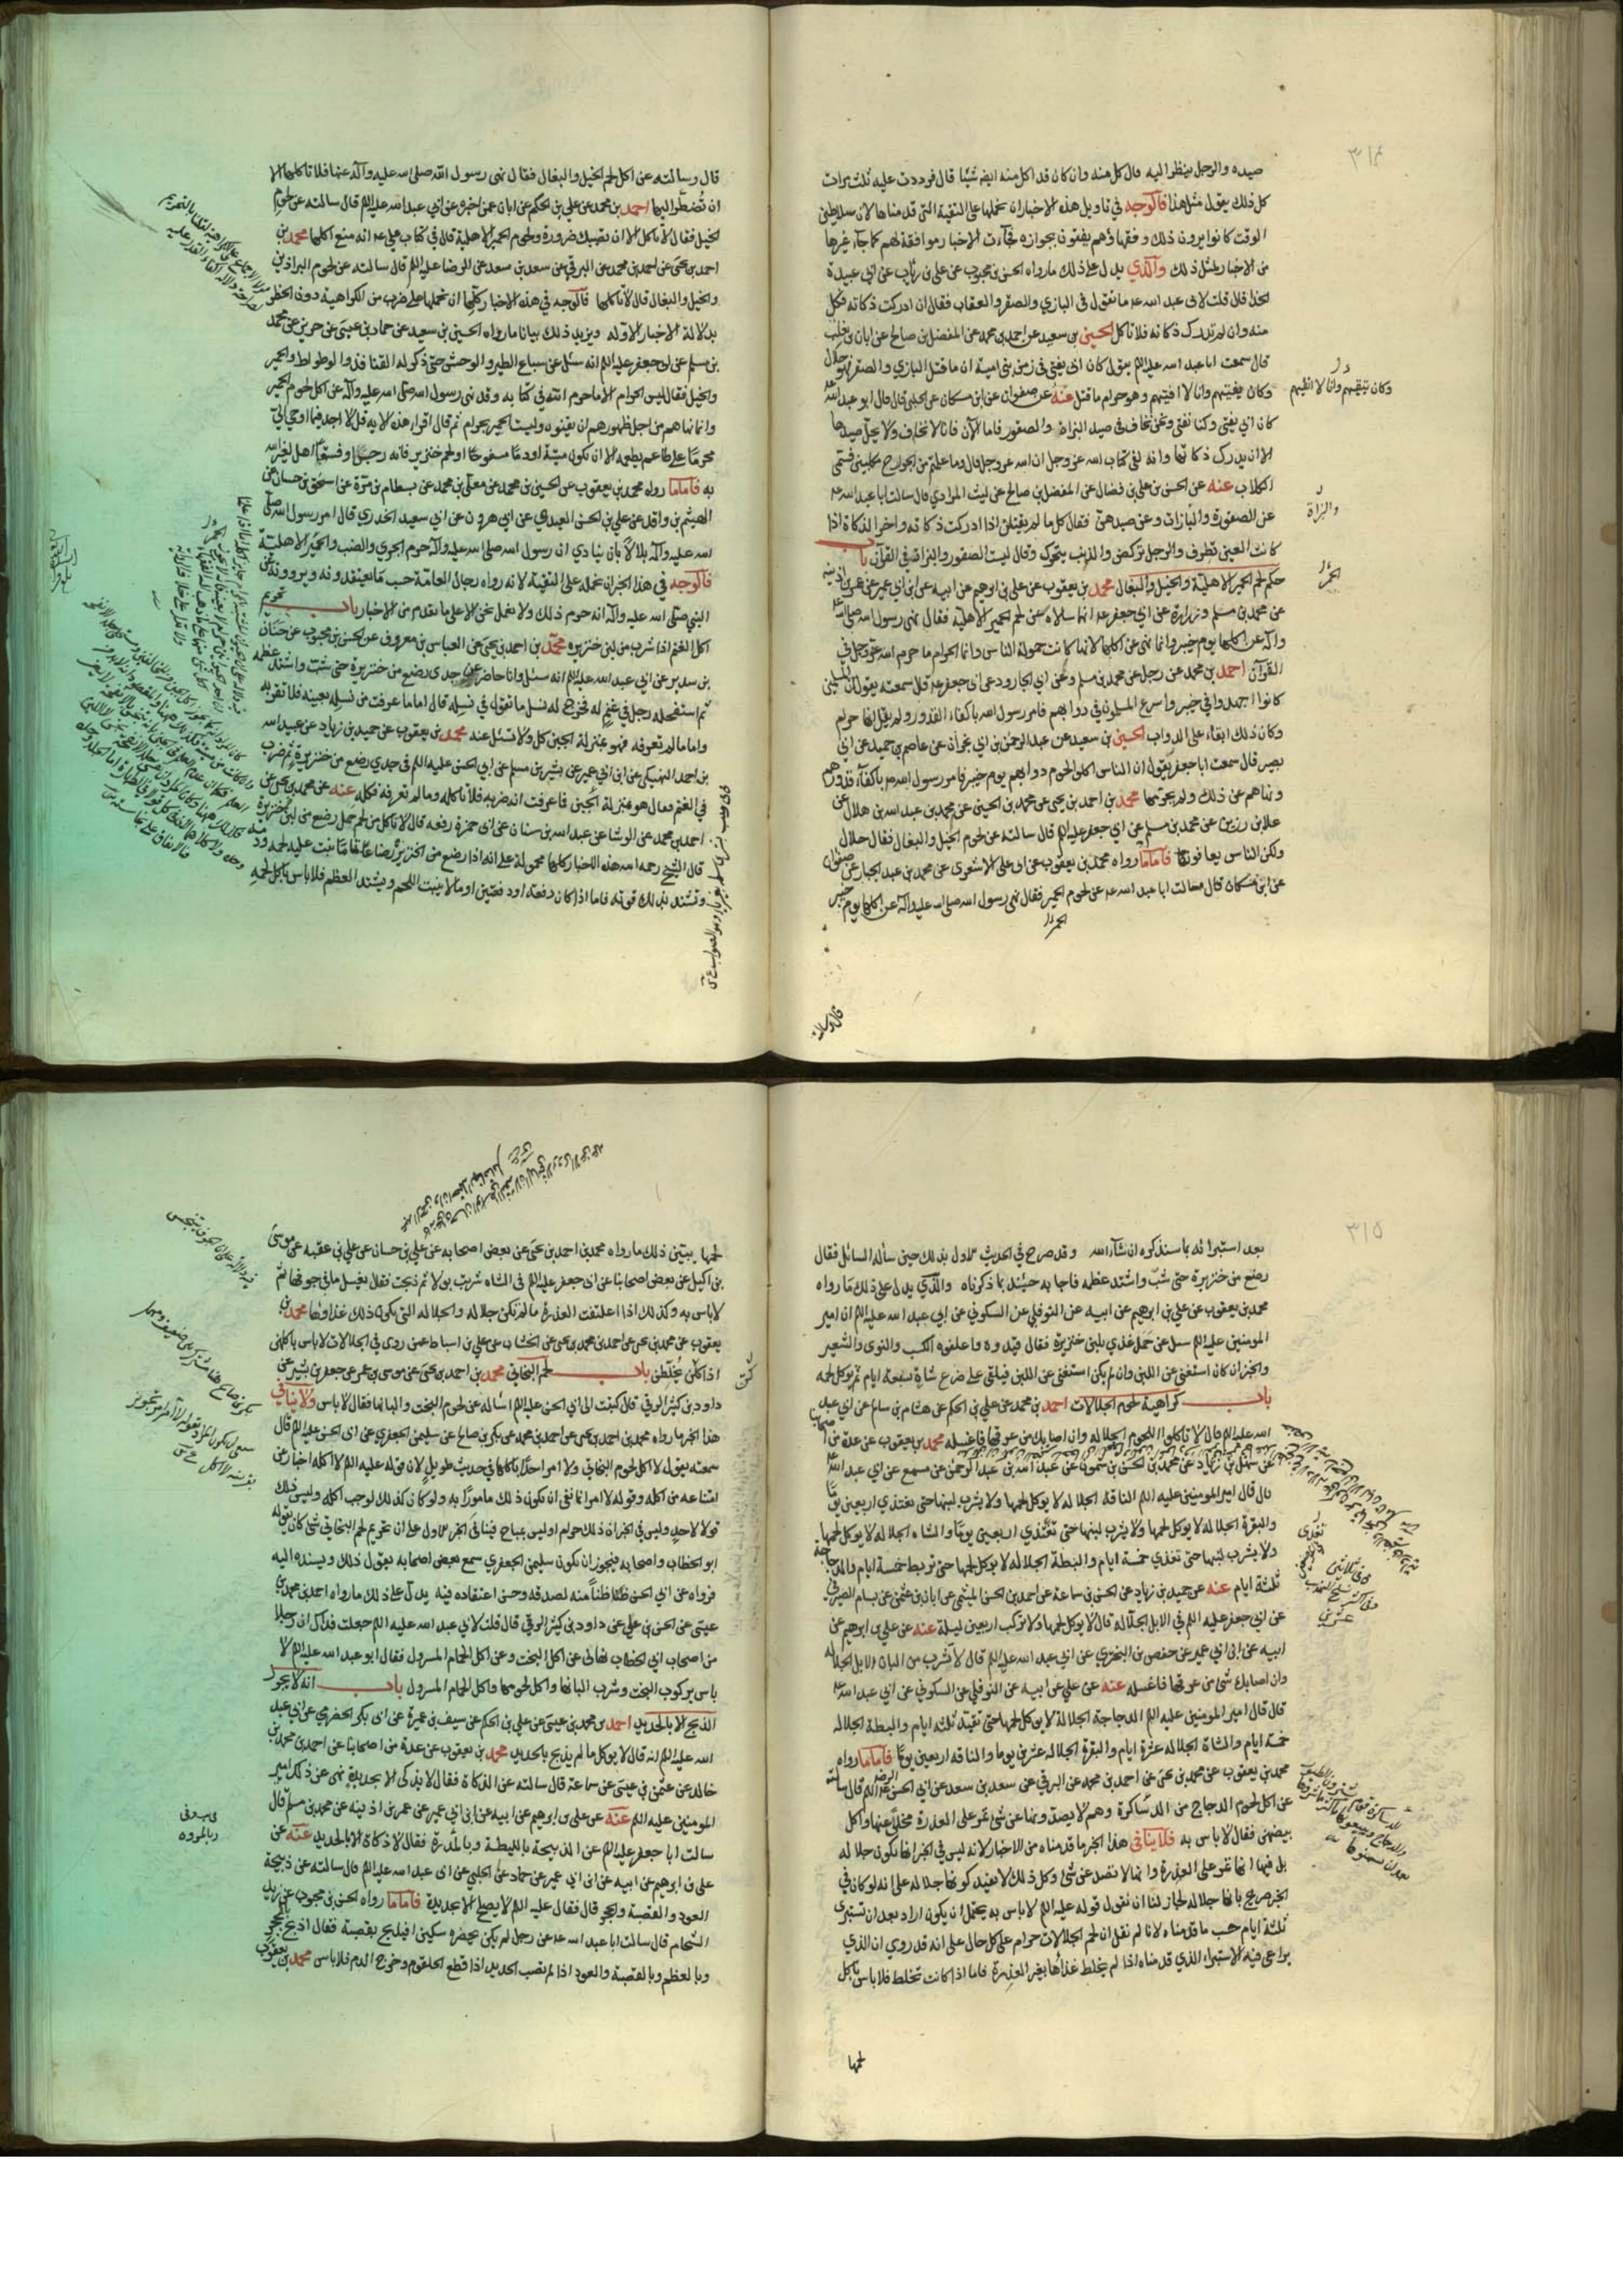 ٣١٤
صيده والرجل ينظر اليه قال كل منه وان كان قد اكل منه ايضا شيئا قال فرددت عليه ثلث مرات
كل ذلك يقول مثل هذا فالوجه في تاويل هذه الاخبار ان نحملها على التقية التي قدمناها لان سلاطين
الوقت كانوا يرون ذلك وفقهاؤهم يفتون بجوازه فجاءت الاخبار موافقة لهم كما جاء غيرها
من الاخبار لمثل ذلك والذي يدل على ذلك ما رواه الحسن بن محبوب عن علي بن رئاب عن ابي عبيدة
الحذا قال قلت لابي عبد الله عه ما تقول في البازي والصقر والعقاب فقال ان ادركت ذكاته فكل
منه وان لم تدرك ذكاته فلا تاكل الحسين بن سعيد عن احمد بن محمد عن المفضل بن صالح عن ابان بن تغلب
قال سمعت ابا عبد الله عليه الم يقول كان ابي يفتي في زمن بني امية ان ما قتل البازي والصقر فهو حلال
وكان يتقيهم وانا لا اتقيهم
وكان يفتيهم وانا لا افتيهم وهو حرام ما قتل عنه عن صفوان عن ابن مسكان عن الحلبي قال قال ابو عبد الله عه
كان ابي يفتي وكنا نفتي ونحن نخاف في صيد البزاة والصقور فاما الآن فانا لا نخاف ولا يحل صيدها
الا ان يدرك ذكاتها وانه لفي كتاب الله عز وجل ان الله عز وجل قال وما علمتم من الجوارح مكلبين فسمى
الكلاب عنه عن الحسن بن علي بن فضال عن المفضل بن صالح عن ليث المرادي قال سالت ابا عبد الله عه
عن الصقورة والبازات وعن صيدهن فقال كل ما لم يقتلن اذا ادركت ذكاته واخر الذكاة اذا
والبزاة
كانت العين تطرف والرجل تركض والذنب يتحرك وقال ليست الصقور والبزاة في القرآن باب
حكم لحم الحمر الاهلية والخيل والبغال محمد بن يعقوب عن علي بن ابرهيم عن ابيه عن ابن ابي عمير عن عمر بن اذينه
عن محمد بن مسلم وزرارة عن ابي جعفر عه انهما سالاه عن لحم الحمير الاهلية فقال نهى رسول الله صلى الله عليه
وآله عن اكلها يوم خيبر وانما نهى عن اكلها لانها كانت حمولة الناس وانما الحرام ما حرم الله عز وجل في
القرآن احمد بن محمد عن رجل عن محمد بن مسلم وعن ابي الجارود عن ابي جعفر عه قال سمعته يقول ان المسلمين
كانوا اجهدوا في خيبر واسرع المسلمون في دوابهم فامر رسول الله باكفاء القدور ولم يقل انها حرام
وكان ذلك ابقاء على الدواب الحسين بن سعيد عن عبد الرحمن بن ابي نجران عن عاصم بن حميد عن ابي
بصير قال سمعت ابا جعفر يقول ان الناس اكلوا لحوم دوابهم يوم خيبر فامر رسول الله صه باكفاء قدورهم
ونهاهم عن ذلك ولم يحرمها محمد بن احمد بن يحيى عن محمد بن الحسين عن محمد بن عبد الله بن هلال عن
علا بن رزين عن محمد بن مسلم عن ابي جعفر عليه الم قال سالته عن لحوم الخيل والبغال فقال حلال
ولكن الناس يعافونها فاما ما رواه محمد بن يعقوب عن ابي علي الاشعري عن محمد بن عبد الجبار عن صفوان
عن ابن مسكان قال سالت ابا عبد الله عه عن لحوم الحمير فقال نهى رسول الله صلى الله عليه وآله عن اكلها يوم خيبر
الحمر
قال وسالته
قال وسالته عن اكل لحم الخيل والبغال فقال نهى رسول الله صلى الله عليه وآله عنها فلا تاكلها الا
ان تضطر اليها احمد بن محمد عن علي بن الحكم عن ابان عمن اخبره عن ابي عبد الله عليه الم قال سالته عن لحوم
الخيل فقال لا تاكل الا ان تصيبك ضرورة ولحوم الحمير الاهلية قال في كتاب علي عه انه منع اكلها محمد بن
احمد بن يحيى عن احمد بن محمد عن البرقي عن سعد بن سعد عن الرضا عليه الم قال سالته عن لحوم البراذين
والخيل والبغال قال لا تاكلها فالوجه في هذه الاخبار كلها ان نحملها على ضرب من الكراهية دون الحظر
بدلالة الاخبار الاوله ويزيد ذلك بيانا ما رواه الحسين بن سعيد عن حماد بن عيسى عن حريز عن محمد
بن مسلم عن ابي جعفر عليه الم انه سئل عن سباع الطير والوحش حتى ذكر له القنافذ والوطواط والحمير
والخيل فقال ليس الحرام الا ما حرم الله في كتابه وقد نهى رسول الله صلى الله عليه وآله عن اكل لحوم الحمير
وانما نهاهم من اجل ظهورهم ان يفنوه وليست الحمير بحرام ثم قال اقرا هذه الايه قل لا اجد فيما اوحي الي
محرما على طاعم يطعمه الا ان يكون ميتة او دما مسفوحا او لحم خنزير فانه رجس او فسقا اهل لغير الله
به فاما ما رواه محمد بن يعقوب عن الحسين بن محمد عن معلى بن محمد عن بسطام بن مرة عن اسحق بن حسان عن
الهيثم بن واقد عن علي بن الحسن العبدي عن ابي هرون عن ابي سعيد الخدري قال امر رسول الله صلى
الله عليه وآله بلالا بان ينادي ان رسول الله صلى الله عليه وآله حرم الجري والضب والحمير الاهلية
فالوجه في هذا الخبر ان نحمله على التقية لانه رواه رجال العامة حسب ما يعتقدونه ويروونه عن
النبي صلى الله عليه وآله انه حرم ذلك ولا نعمل نحن الا على ما تقدم من الاخبار باب تحريم
اكل الغنم اذا شرب من لبن خنزيره محمد بن احمد بن يحيى عن العباس بن معروف عن الحسن بن محبوب عن حنان
بن سدير عن ابي عبد الله عليه الم انه سئل وانا حاضر عن جدي رضع من خنزيرة حتى شب واشتد عظمه
ثم استفحله رجل في غنم له فخرج له نسل ما تقول في نسله قال اما ما عرفت من نسله بعينه فلا تقربه
واما ما لم تعرفه فهو بمنزلة الجبن كل ولا تسئل عنه محمد بن يعقوب عن حميد بن زياد عن عبيد الله
بن احمد النهيكي عن ابن ابي عمير عن بشير بن مسلم عن ابي الحسن عليه الم في جدي رضع من خنزيرة ثم ضرب
في الغنم فقال هو بمنزلة الجبن فما عرفت انه ضربه فلا تاكله وما لم تعرفه فكله عنه عن محمد بن يحيى عن
احمد بن محمد عن الوشا عن عبد الله بن سنان عن ابي حمزة رفعه قال لا تاكل من لحم حمل رضع من لبن خنزيرة
قال الشيخ رحمه الله هذه الاخبار كلها محمولة على انه اذا رضع من الخنزيرة رضاعا تاما نبت عليه لحمه ودمه
وتشتد بذلك قوته فاما اذا كان دفعة او دفعتين او ما لا ينبت اللحم ويشتد العظم فلا باس باكل لحمه
٣١٥
بعد استبرائه بما سنذكره ان شاء الله وقد صرح في الحديث الاول بذلك حين سأله السائل فقال
رضع من خنزيرة حتى شب واشتد عظمه فاجابه حينئذ بما ذكرناه والذي يدل على ذلك ما رواه
محمد بن يعقوب عن علي بن ابرهيم عن ابيه عن النوفلي عن السكوني عن ابي عبد الله عليه الم ان امير
المومنين عليه الم سئل عن حمل غذي بلبن خنزيرة فقال قيدوه واعلفوه الكسب والنوى والشعير
والخبز ان كان استغنى عن اللبن وان لم يكن استغنى عن اللبن فيلقى على ضرع شاة سبعة ايام ثم يوكل لحمه
باب كراهية لحوم الجلالات احمد بن محمد عن علي بن الحكم عن هشام بن سالم عن ابي عبد
الله عليه الم قال لا تاكلوا اللحوم الجلاله وان اصابك من عرقها فاغسله محمد بن يعقوب عن عدة من اصحابنا
عن سهل بن زياد عن محمد بن الحسن بن شمون عن عبد الله بن عبد الرحمن عن مسمع عن ابي عبد الله عه
قال قال امير المومنين عليه الم الناقة الجلاله لا يوكل لحمها ولا يشرب لبنها حتى تغتذي اربعين يوما
والبقرة الجلاله لا يوكل لحمها ولا يشرب لبنها حتى تغتذي اربعين يوما والشاه الجلاله لا يوكل لحمها
ولا يشرب لبنها حتى تغذي خمسة ايام والبطة الجلاله لا يوكل لحمها حتى تربط خمسة ايام والدجاجة
ثلثة ايام عنه عن حميد بن زياد عن الحسن بن سماعة عن احمد بن الحسن الميثمي عن ابان بن عثمن عن بسام الصيرفي
عن ابي جعفر عليه الم في الابل الجلاله قال لا يوكل لحمها ولا تركب اربعين ليلة عنه عن علي بن ابرهيم عن
ابيه عن ابن ابي عمير عن حفص بن البختري عن ابي عبد الله عليه الم قال لا تشرب من البان الابل الجلاله
وان اصابك شئ من عرقها فاغسله عنه عن علي عن ابيه عن النوفلي عن السكوني عن ابي عبد الله عه
قال قال امير المومنين عليه الم الدجاجة الجلالة لا يوكل لحمها حتى تقيد ثلثه ايام والبطة الجلاله
خمسة ايام والشاة الجلاله عشرة ايام والبقرة الجلاله عشرين يوما والناقه اربعين يوما فاما ما رواه
محمد بن يعقوب عن محمد بن يحيى عن احمد بن محمد عن البرقي عن سعد بن سعد عن ابي الحسن الرضا عليه الم قال سالته
عن اكل لحوم الدجاج من الدساكرة وهم لا يصدونها عن شئ تمر على العذرة مخلى عنها واكل
بيضهن فقال لا باس به فلا ينافي هذا الخبر ما قدمناه من الاخبار لانه ليس في الخبر انها تكون جلاله
بل فيها انها تمر على العذرة وانها لا تصد عن شئ وكل ذلك لا يفيد كونها جلاله على انه لو كان في
الخبر صريح بانها جلاله لجاز لنا ان نقول قوله عليه الم لا باس به يحتمل ان يكون اراد بعد ان تستبرئ
ثلثة ايام حسب ما قدمناه ولانا لم نقل ان لحم الجلالات حرام على كل حال على انه قد روي ان الذي
يراعى فيه الاستبراء الذي قدمناه اذا لم يخلط غذائها بغير العذرة فاما اذا كانت تخلط فلا باس باكل
لحمها
لحمها يبين ذلك ما رواه محمد بن احمد بن يحيى عن بعض اصحابه عن علي بن حسان عن علي بن عقبه عن موسى
بن اكيل عن بعض اصحابنا عن ابي جعفر عليه الم في الشاه شربت بولا ثم ذبحت فقال يغسل ما في جوفها ثم
لا باس به وكذلك اذا اعتلفت العذرة ما لم تكن جلاله والجلاله التي يكون ذلك غذاوها محمد بن
يعقوب عن محمد بن يحيى عن احمد بن محمد بن يحيى عن الخشاب عن علي بن اسباط عمن روى في الجلالات لا باس باكلهن
اذا كن يخلطن باب لحم البخاتي محمد بن احمد بن يحيى عن موسى بن عمر عن جعفر بن بشير عن
داود بن كثير الرقي قال كتبت الى ابي الحسن عليه الم اسأله عن لحوم البخت والبانها فقال لا باس ولا ينافي
هذا الخبر ما رواه محمد بن احمد بن يحيى عن احمد بن محمد عن بكر بن صالح عن سليمن الجعفري عن ابي الحسن عليه الم قال
سمعته يقول لا اكل لحوم البخاتي ولا امر احدا باكلها في حديث طويل لان قوله عليه الم لا اكله اخبار عن
امتناعه من اكله وقوله لا امر انما نفى ان يكون ذلك مامورا به ولو كان كذلك لوجب اكله وليس ذلك
قولا لاحد وليس في الخبر ان ذلك حرام او ليس بمباح فينافي الخبر الاول على ان تحريم لحم البخاتي شئ كان يقوله
ابو الخطاب واصحابه فيجوز ان يكون سليمن الجعفري سمع بعض اصحابه يقول ذلك ويسنده اليه
فرواه عن ابي الحسن ظنا منه لصدقه وحسن اعتقاده فيه يدل على ذلك ما رواه احمد بن محمد بن
عيسى عن الحسن بن علي عن داود بن كثير الرقي قال قلت لابي عبد الله عليه الم جعلت فداك ان رجلا
من اصحاب ابي الخطاب نهاني عن اكل البخت وعن اكل الحمام المسرول فقال ابو عبد الله عليه الم لا
باس بركوب البخت وشرب البانها واكل لحومها واكل الحمام المسرول باب انه لا يجوز
الذبح الا بالحديد احمد بن محمد بن عيسى عن علي بن الحكم عن سيف بن عميرة عن ابي بكر الحضرمي عن ابي عبد
الله عليه الم انه قال لا يوكل ما لم يذبح بالحديد محمد بن يعقوب عن عدة من اصحابنا عن احمد بن محمد بن
خالد عن عثمن بن عيسى عن سماعة قال سالته عن الذكاة فقال لا يذكى الا بحديدة نهى عن ذلك امير
المومنين عليه الم عنه عن علي بن ابرهيم عن ابيه عن ابن ابي عمير عن عمر بن اذينه عن محمد بن مسلم قال
سالت ابا جعفر عليه الم عن الذبيحة بالليطة وبالمدرة فقال لا ذكاة الا بالحديد عنه عن
علي بن ابرهيم عن ابيه عن ابن ابي عمير عن حماد عن الحلبي عن ابي عبد الله عليه الم قال سالته عن ذبيحة
العود والقصبة والحجر قال فقال عليه الم لا يصلح الا بحديدة فاما ما رواه الحسن بن محبوب عن زيد
الشحام قال سالت ابا عبد الله عه عن رجل لم يكن بحضرته سكين افيذبح بقصبة فقال اذبح بالحجر
وبالعظم وبالقصبة والعود اذا لم تصب الحديد اذا قطع الحلقوم وخرج الدم فلا باس محمد بن يعقوب